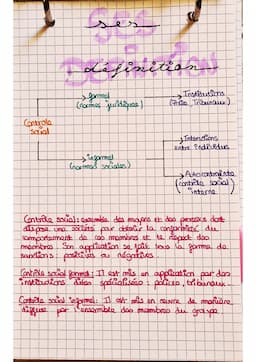 SES
ses
DEFINITION
définition
→ formel
(normes juridiques)
→ Institutions
(Police, Tribunaux)
Contrôle
social
→ Interactions
entre individus
→ informel
(normes sociales)
→ Autocontrainte
(contrôle social)
interne
Contrôle social : ensemble des moyens et des processus dont
dispose une société pour obtenir la conformité du
comportement de ses membres et le respect des
membres. Son application se fait sous la forme de
sanctions : positives ou négatives.
Contrôle social formel : Il est mis en application par des
institutions dites spécialisées : polices, tribunaux.
Contrôle social informel : Il est mis en œuvre de manière
diffuse par l'ensemble des membres du groupe